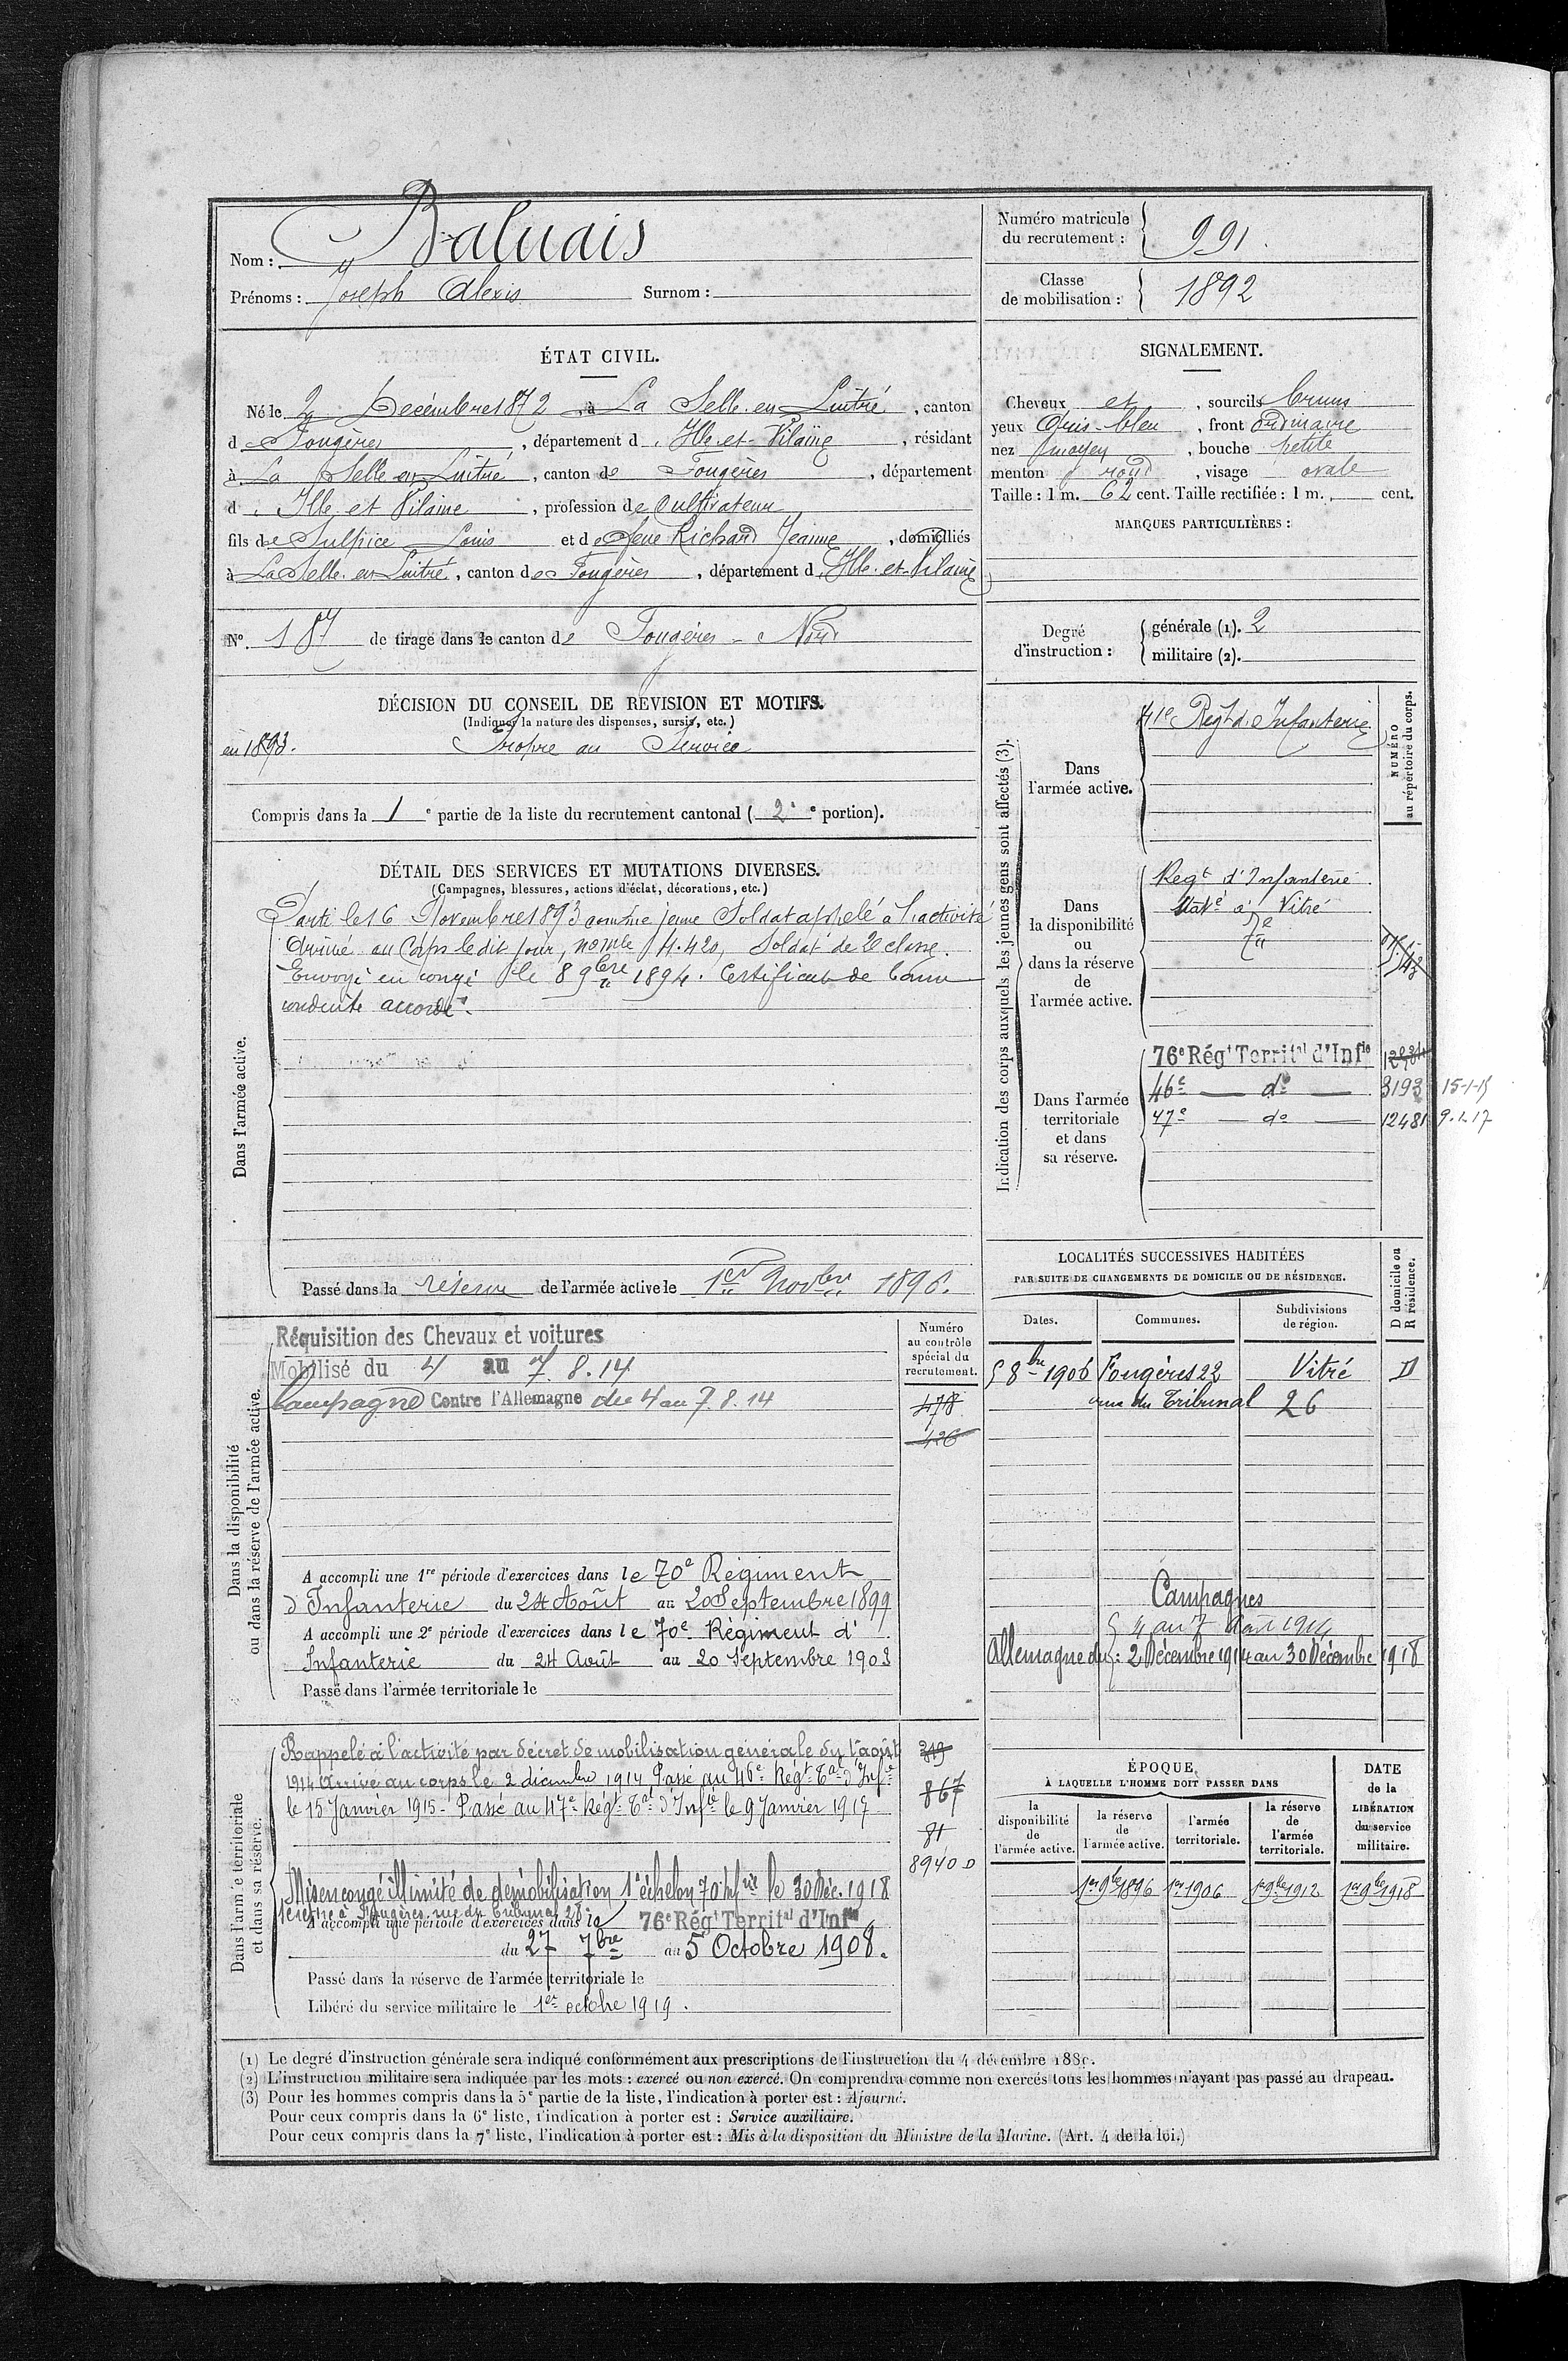 Nom : Baluais
Prénoms : Joseph Alexis Surnom :
Numéro matricule du recrutement : 991.
Classe de mobilisation : 1892
ÉTAT CIVIL.
Né le 2 Décembre 1872, à La Selle-en-Luitré, canton
de Fougères, département d'Ille-et-Vilaine, résidant
à La Selle en Luitré, canton de Fougères, département
d'Ille et Vilaine, profession de Cultivateur
fils de Sulpice Louis et de feue Richard Jeanne, domiciliés
à La Selle-en-Luitré, canton de Fougères, département d'Ille-et-Vilaine
N° 187 de tirage dans le canton de Fougères-Nord
SIGNALEMENT.
Cheveux et, sourcils bruns
yeux Gris-bleu, front ordinaire
nez moyen, bouche petite
menton rond, visage ovale
Taille : 1 m. 62 cent. Taille rectifiée : 1 m. cent.
MARQUES PARTICULIÈRES :
Degré d'instruction : générale (1). 2
militaire (2).
DÉCISION DU CONSEIL DE REVISION ET MOTIFS.
(Indiquer la nature des dispenses, sursis, etc.)
en 1893. Propre au Service
Compris dans la 1e partie de la liste du recrutement cantonal (2e portion).
DÉTAIL DES SERVICES ET MUTATIONS DIVERSES.
(Campagnes, blessures, actions d'éclat, décorations, etc.)
Dans l'armée active.
Parti le 16 Novembre 1893 comme jeune Soldat appelé à l'activité
Arrivé au Corps le dit jour, n° mle 4.420, Soldat de 2e classe.
Envoyé en congé le 8 9bre 1894. Certificat de bonne
conduite accordé.
Passé dans la réserve de l'armée active le 1er Novbre 1896.
Indication des corps auxquels les jeunes gens sont affectés (3).
NUMÉRO au répertoire du corps.
Dans l'armée active.
41e Regt d'Infanterie
Dans la disponibilité ou dans la réserve de l'armée active.
Regt d'Infanterie
Statné à Vitré
Dans l'armée territoriale et dans sa réserve.
76e Régt Territal d'Infie
46e — do — 3193 15-1-15
47e — do — 12481 9.1.17
LOCALITÉS SUCCESSIVES HABITÉES
PAR SUITE DE CHANGEMENTS DE DOMICILE OU DE RÉSIDENCE.
Dates. Communes. Subdivisions de région. D domicile ou R résidence.
5 8bre 1906 Fougères 22 Vitré D
rue du Tribunal 26
Campagnes
4 au 7 Août 1914
Allemagne du : 2 Décembre 1914 au 30 Décembre 1918
Dans la disponibilité ou dans la réserve de l'armée active.
Numéro au contrôle spécial du recrutement.
Réquisition des Chevaux et voitures
Mobilisé du 4 au 7.8.14
Campagne Contre l'Allemagne du 4 au 7.8.14
478
426
A accompli une 1re période d'exercices dans le 70e Régiment
d'Infanterie du 24 Août au 20 Septembre 1899
A accompli une 2e période d'exercices dans le 70e Régiment d'
Infanterie du 24 Août au 20 Septembre 1903
Passé dans l'armée territoriale le
Dans l'armée territoriale et dans sa réserve.
Rappelé à l'activité par décret de mobilisation générale du 1 août
1914 Arrivé au corps le 2 décembre 1914. Passé au 46e Régt Tal d'Infie
le 15 Janvier 1915 - Passé au 47e Régt Tal d'Infie le 9 Janvier 1917
319
867
81
8940 D
Mis en congé illimité de démobilisation 1e échelon 70e Infie le 30 Déc. 1918
se retire à Fougères rue du Tribunal 28
A accompli une période d'exercices dans le 76e Régt Territal d'Infie
du 27 7bre au 5 Octobre 1908.
Passé dans la réserve de l'armée territoriale le
Libéré du service militaire le 1er octobre 1919.
ÉPOQUE
À LAQUELLE L'HOMME DOIT PASSER DANS
la disponibilité de l'armée active.
la réserve de l'armée active.
l'armée territoriale.
la réserve de l'armée territoriale.
DATE de la LIBÉRATION du service militaire.
1er 9bre 1896 1er 1906 1er 9bre 1912 1er 9bre 1918
(1) Le degré d'instruction générale sera indiqué conformément aux prescriptions de l'instruction du 4 décembre 1889.
(2) L'instruction militaire sera indiquée par les mots : exercé ou non exercé. On comprendra comme non exercés tous les hommes n'ayant pas passé au drapeau.
(3) Pour les hommes compris dans la 5e partie de la liste, l'indication à porter est : Ajourné.
Pour ceux compris dans la 6e liste, l'indication à porter est : Service auxiliaire.
Pour ceux compris dans la 7e liste, l'indication à porter est : Mis à la disposition du Ministre de la Marine. (Art. 4 de la loi.)